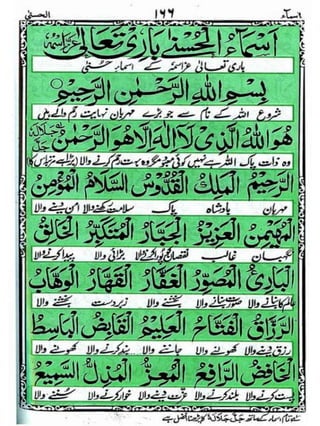 اسماء ١٦٦ الحسنى
اَسْمَاءُ الْحُسْنٰى بَارِیْ تَعَالٰی عَزَّاسْمُهٗ
باری تعالیٰ عزاسمہ کے اسماء حسنیٰ
بِسْمِ اللّٰهِ الرَّحْمٰنِ الرَّحِيْمِ
شروع اللہ کے نام سے جو بڑے مہربان نہایت رحم والے ہیں
هُوَ اللّٰهُ الَّذِيْ لَا اِلٰهَ اِلَّا هُوَ الرَّحْمٰنُ جل جلالہ
وہ ذات پاک اللہ ہے نہیں کوئی معبود مگر وہ بہت رحم کرنے والا
الرَّحِيْمُ الْمَلِكُ الْقُدُّوْسُ السَّلَامُ الْمُؤْمِنُ
مہربان بادشاہ پاک سلامت رکھنے والا امن دینے والا
الْمُهَيْمِنُ الْعَزِيْزُ الْجَبَّارُ الْمُتَكَبِّرُ الْخَالِقُ
نگہبان غالب بڑائی والا پیدا کرنے والا
الْبَارِئُ الْمُصَوِّرُ الْغَفَّارُ الْقَهَّارُ الْوَهَّابُ
عالم کا بنانے والا صورت بنانے والا بخشنے والا زبردست بخشنے والا
الرَّزَّاقُ الْفَتَّاحُ الْعَلِيْمُ الْقَابِضُ الْبَاسِطُ
رزق دینے والا کھولنے والا جاننے والا بند کرنے والا کھولنے والا
الْخَافِضُ الرَّافِعُ الْمُعِزُّ الْمُذِلُّ السَّمِيْعُ
پست کرنے والا بلند کرنے والا عزت دینے والا خوار کرنے والا سننے والا
ہر نام اسماء کے ساتھ جل جلالہ کہنا افضل ہے